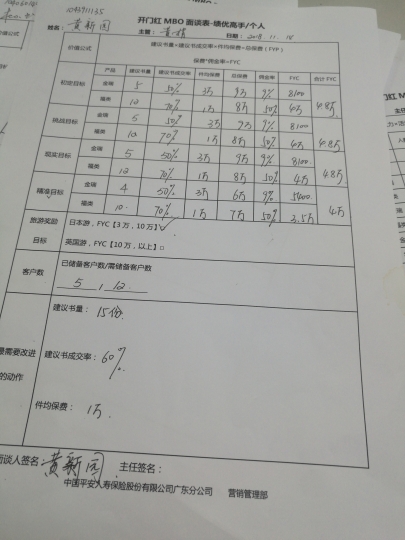 1043911135
开门红 MBO 面谈表-绩优高手/个人
姓名：黄新园 主管： 日期：2018.11.18
价值公式 建议书量×建议书成交率×件均保费=总保费（FYP）
保费*佣金率=FYC
产品 建议书量 建议书成交率 件均保费 总保费 佣金率 FYC 合计 FYC
初定目标 金瑞 5 50% 3万 9万 9% 8100 4.8万
福类 12 70% 1万 8万 50% 4万
挑战目标 金瑞 5 50% 3万 9万 9% 8100 4.8万
福类 12 70% 1万 8万 50% 4万
现实目标 金瑞 5 50% 3万 9万 9% 8100 4.8万
福类 12 70% 1万 8万 50% 4万
精准目标 金瑞 4 50% 3万 6万 9% 5400 4万
福类 10 70% 1万 7万 50% 3.5万
旅游奖励 日本游，FYC【3 万，10 万】☑
目标 英国游，FYC【10 万，以上】□
客户数 已储备客户数/需储备客户数
5 / 12
建议书量：15份
最需要改进 建议书成交率：60%
的动作
件均保费：1万
面谈人签名：黄新园 主任签名：
中国平安人寿保险股份有限公司广东分公司 营销管理部